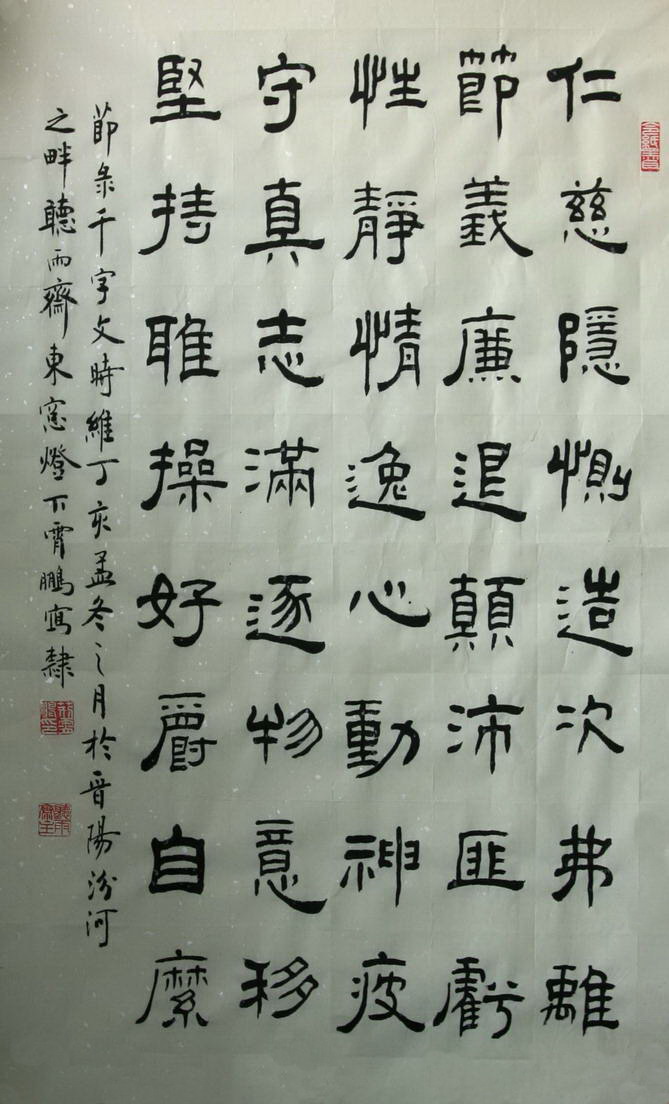 仁慈隱惻造次弗離
節義廉退顛沛匪虧
性靜情逸心動神疲
守真志滿逐物意移
堅持雅操好爵自縻
節录千字文時維丁亥孟冬之月於晉陽汾河
之畔聽雨齋東窓燈下霄鵬寫隸